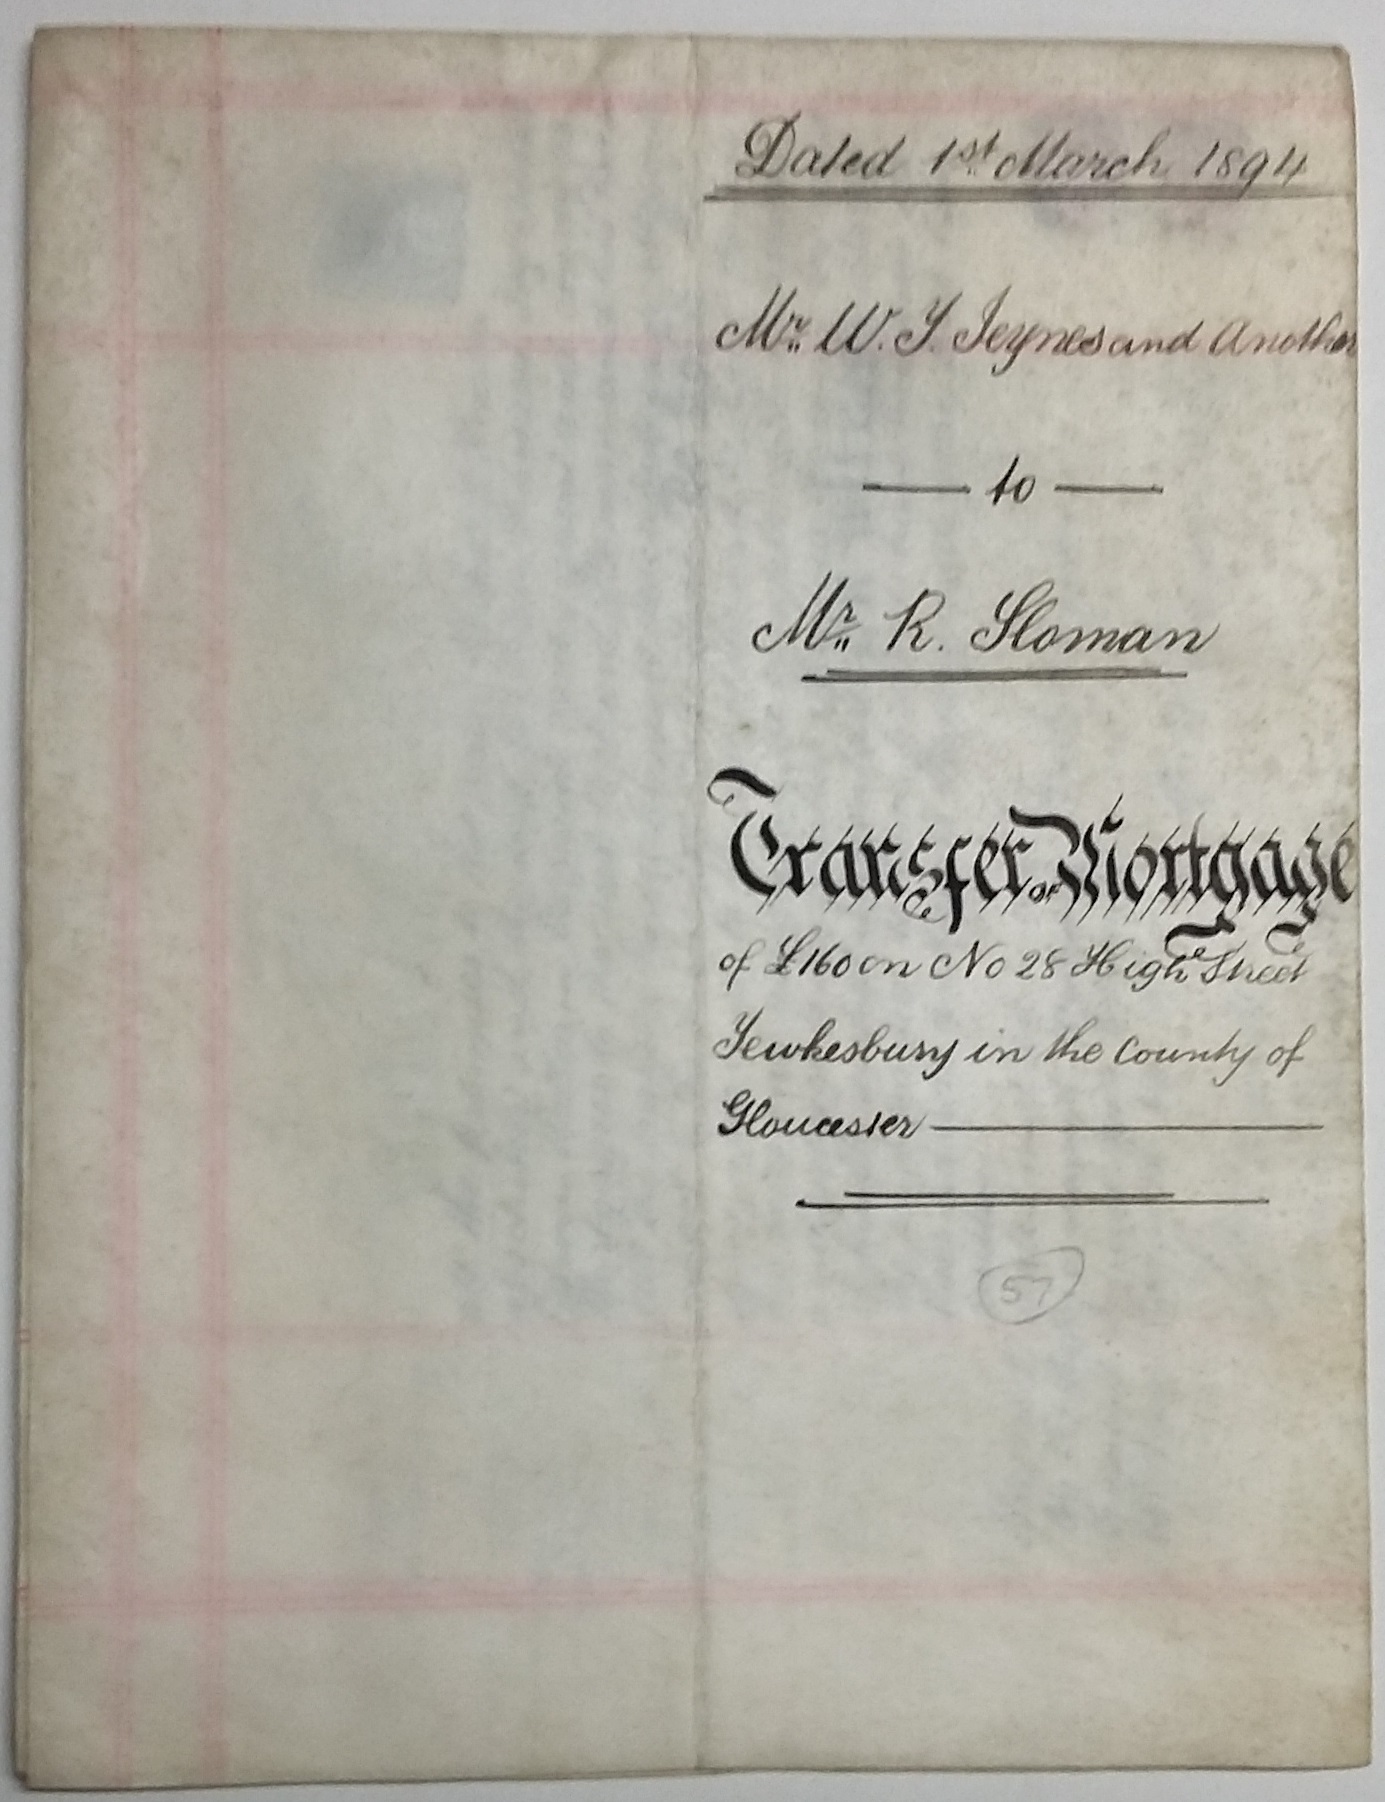 Dated 1st March 1894
Mr. W. T. Jeynes and Another
to
Mr. R. Sloman
Transfer of Mortgage
of £160 on No 28 High Street
Tewkesbury in the County of
Gloucester
57